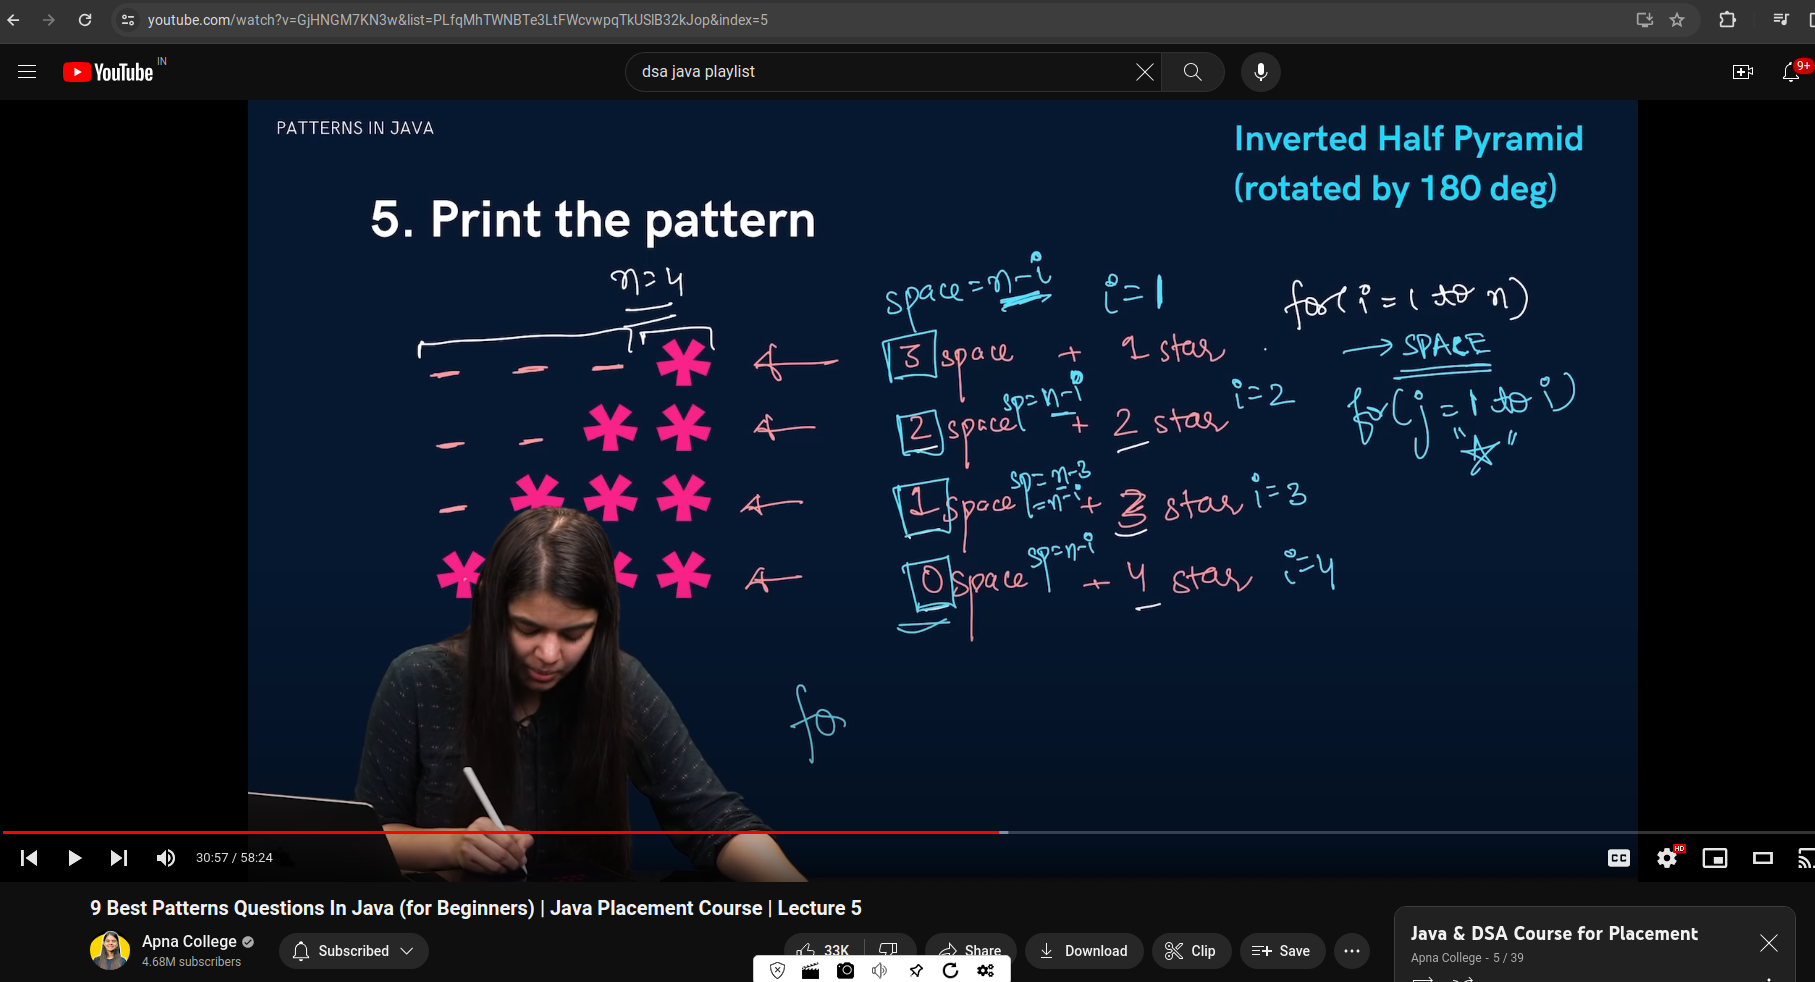 youtube.com/watch?v=GjHNGM7KN3w&list=PLfqMhTWNBTe3LtFWcvwpqTkUSlB32kJop&index=5
YouTube IN
dsa java playlist
9+
PATTERNS IN JAVA
Inverted Half Pyramid
(rotated by 180 deg)
5. Print the pattern
n=4
space=n-i i=1
for(i=1 to n)
3 space + 1 star
→ SPACE
sp=n-i
i=2
2 space + 2 star
for(j=1 to i)
"☆"
sp=n-3
=n-i
1 space + 3 star i=3
sp=n-i
0 space + 4 star i=4
fo
30:57 / 58:24
CC
HD
9 Best Patterns Questions In Java (for Beginners) | Java Placement Course | Lecture 5
Apna College
4.68M subscribers
Subscribed
33K
Share
Download
Clip
Save
Java & DSA Course for Placement
Apna College - 5 / 39